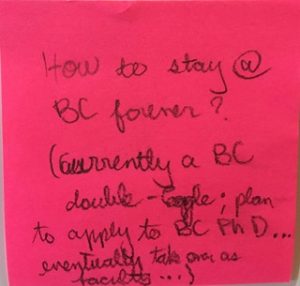 How to stay @
BC forever?
(Currently a BC
double-Eagle; plan
to apply to BC PhD...
eventually take over as
faculty...)